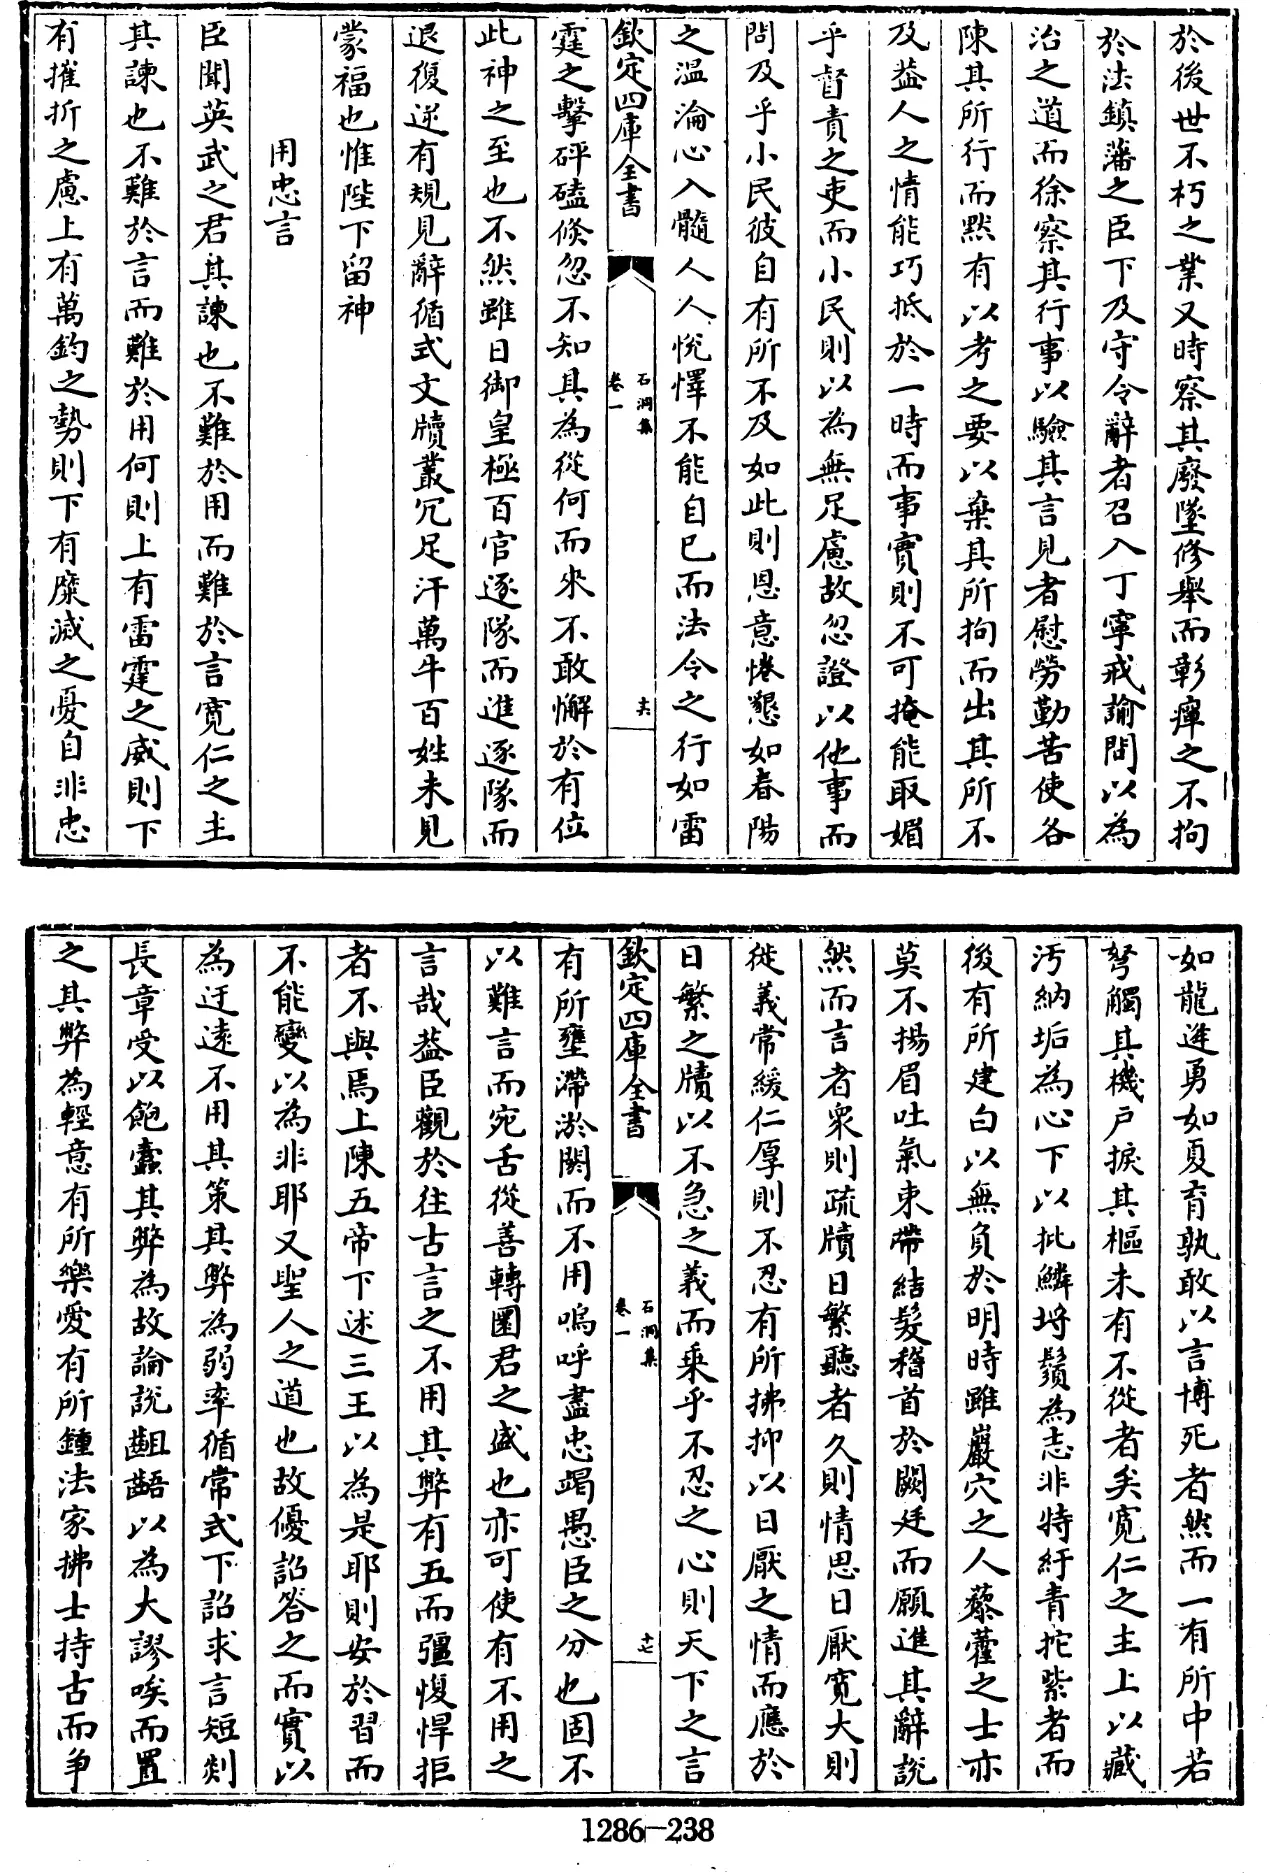 於後世不朽之業又時察其廢墜修舉而彰癉之不拘
於法鎮藩之臣下及守令辭者召入丁寧戒諭問以為
治之道而徐察其行事以驗其言見者慰勞勤苦使各
陳其所行而黙有以考之要以棄其所拘而出其所不
及葢人之情能巧抵於一時而事實則不可掩能取媚
乎督責之吏而小民則以為無足慮故忽證以他事而
問及乎小民彼自有所不及如此則恩意惓懇如春陽
之溫淪心入髓人人悅懌不能自已而法令之行如雷
欽定四庫全書
石洞集
卷一
十六
霆之擊砰磕倏忽不知其為從何而來不敢懈於有位
此神之至也不然雖日御皇極百官逐隊而進逐隊而
退復逆有規見辭循式文牘叢冗足汗萬牛百姓未見
蒙福也惟陛下留神
用忠言
臣聞英武之君其諫也不難於用而難於言寛仁之主
其諫也不難於言而難於用何則上有雷霆之威則下
有摧折之慮上有萬鈞之勢則下有糜滅之憂自非忠
如龍逄勇如夏育孰敢以言博死者然而一有所中若
弩觸其機戶捩其樞未有不從者矣寛仁之主上以藏
汚納垢為心下以批鱗埒鬚為志非特紆青拕紫者而
後有所建白以無負於明時雖巖穴之人藜藿之士亦
莫不揚眉吐氣束帶結髮稽首於闕廷而願進其辭說
然而言者衆則疏牘日繁聽者久則情思日厭寛大則
徙義常緩仁厚則不忍有所拂抑以日厭之情而應於
日繁之牘以不急之義而乘乎不忍之心則天下之言
欽定四庫全書
石洞集
卷一
十七
有所壅滯淤閼而不用嗚呼盡忠竭愚臣之分也固不
以難言而宛舌從善轉圜君之盛也亦可使有不用之
言哉葢臣觀於往古言之不用其弊有五而彊愎悍拒
者不與焉上陳五帝下述三王以為是耶則安於習而
不能變以為非耶又聖人之道也故優詔答之而實以
為迂遠不用其策其弊為弱率循常式下詔求言短剡
長章受以飽蠹其弊為故論說齟齬以為大謬唉而置
之其弊為輕意有所樂愛有所鍾法家拂士持古而爭
1286-238